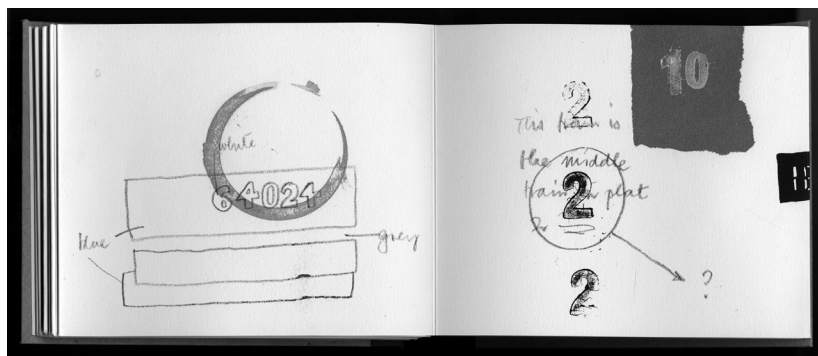 white
64024
blue
grey
10
2
This train is
the middle
train in plat
2
2
?
2